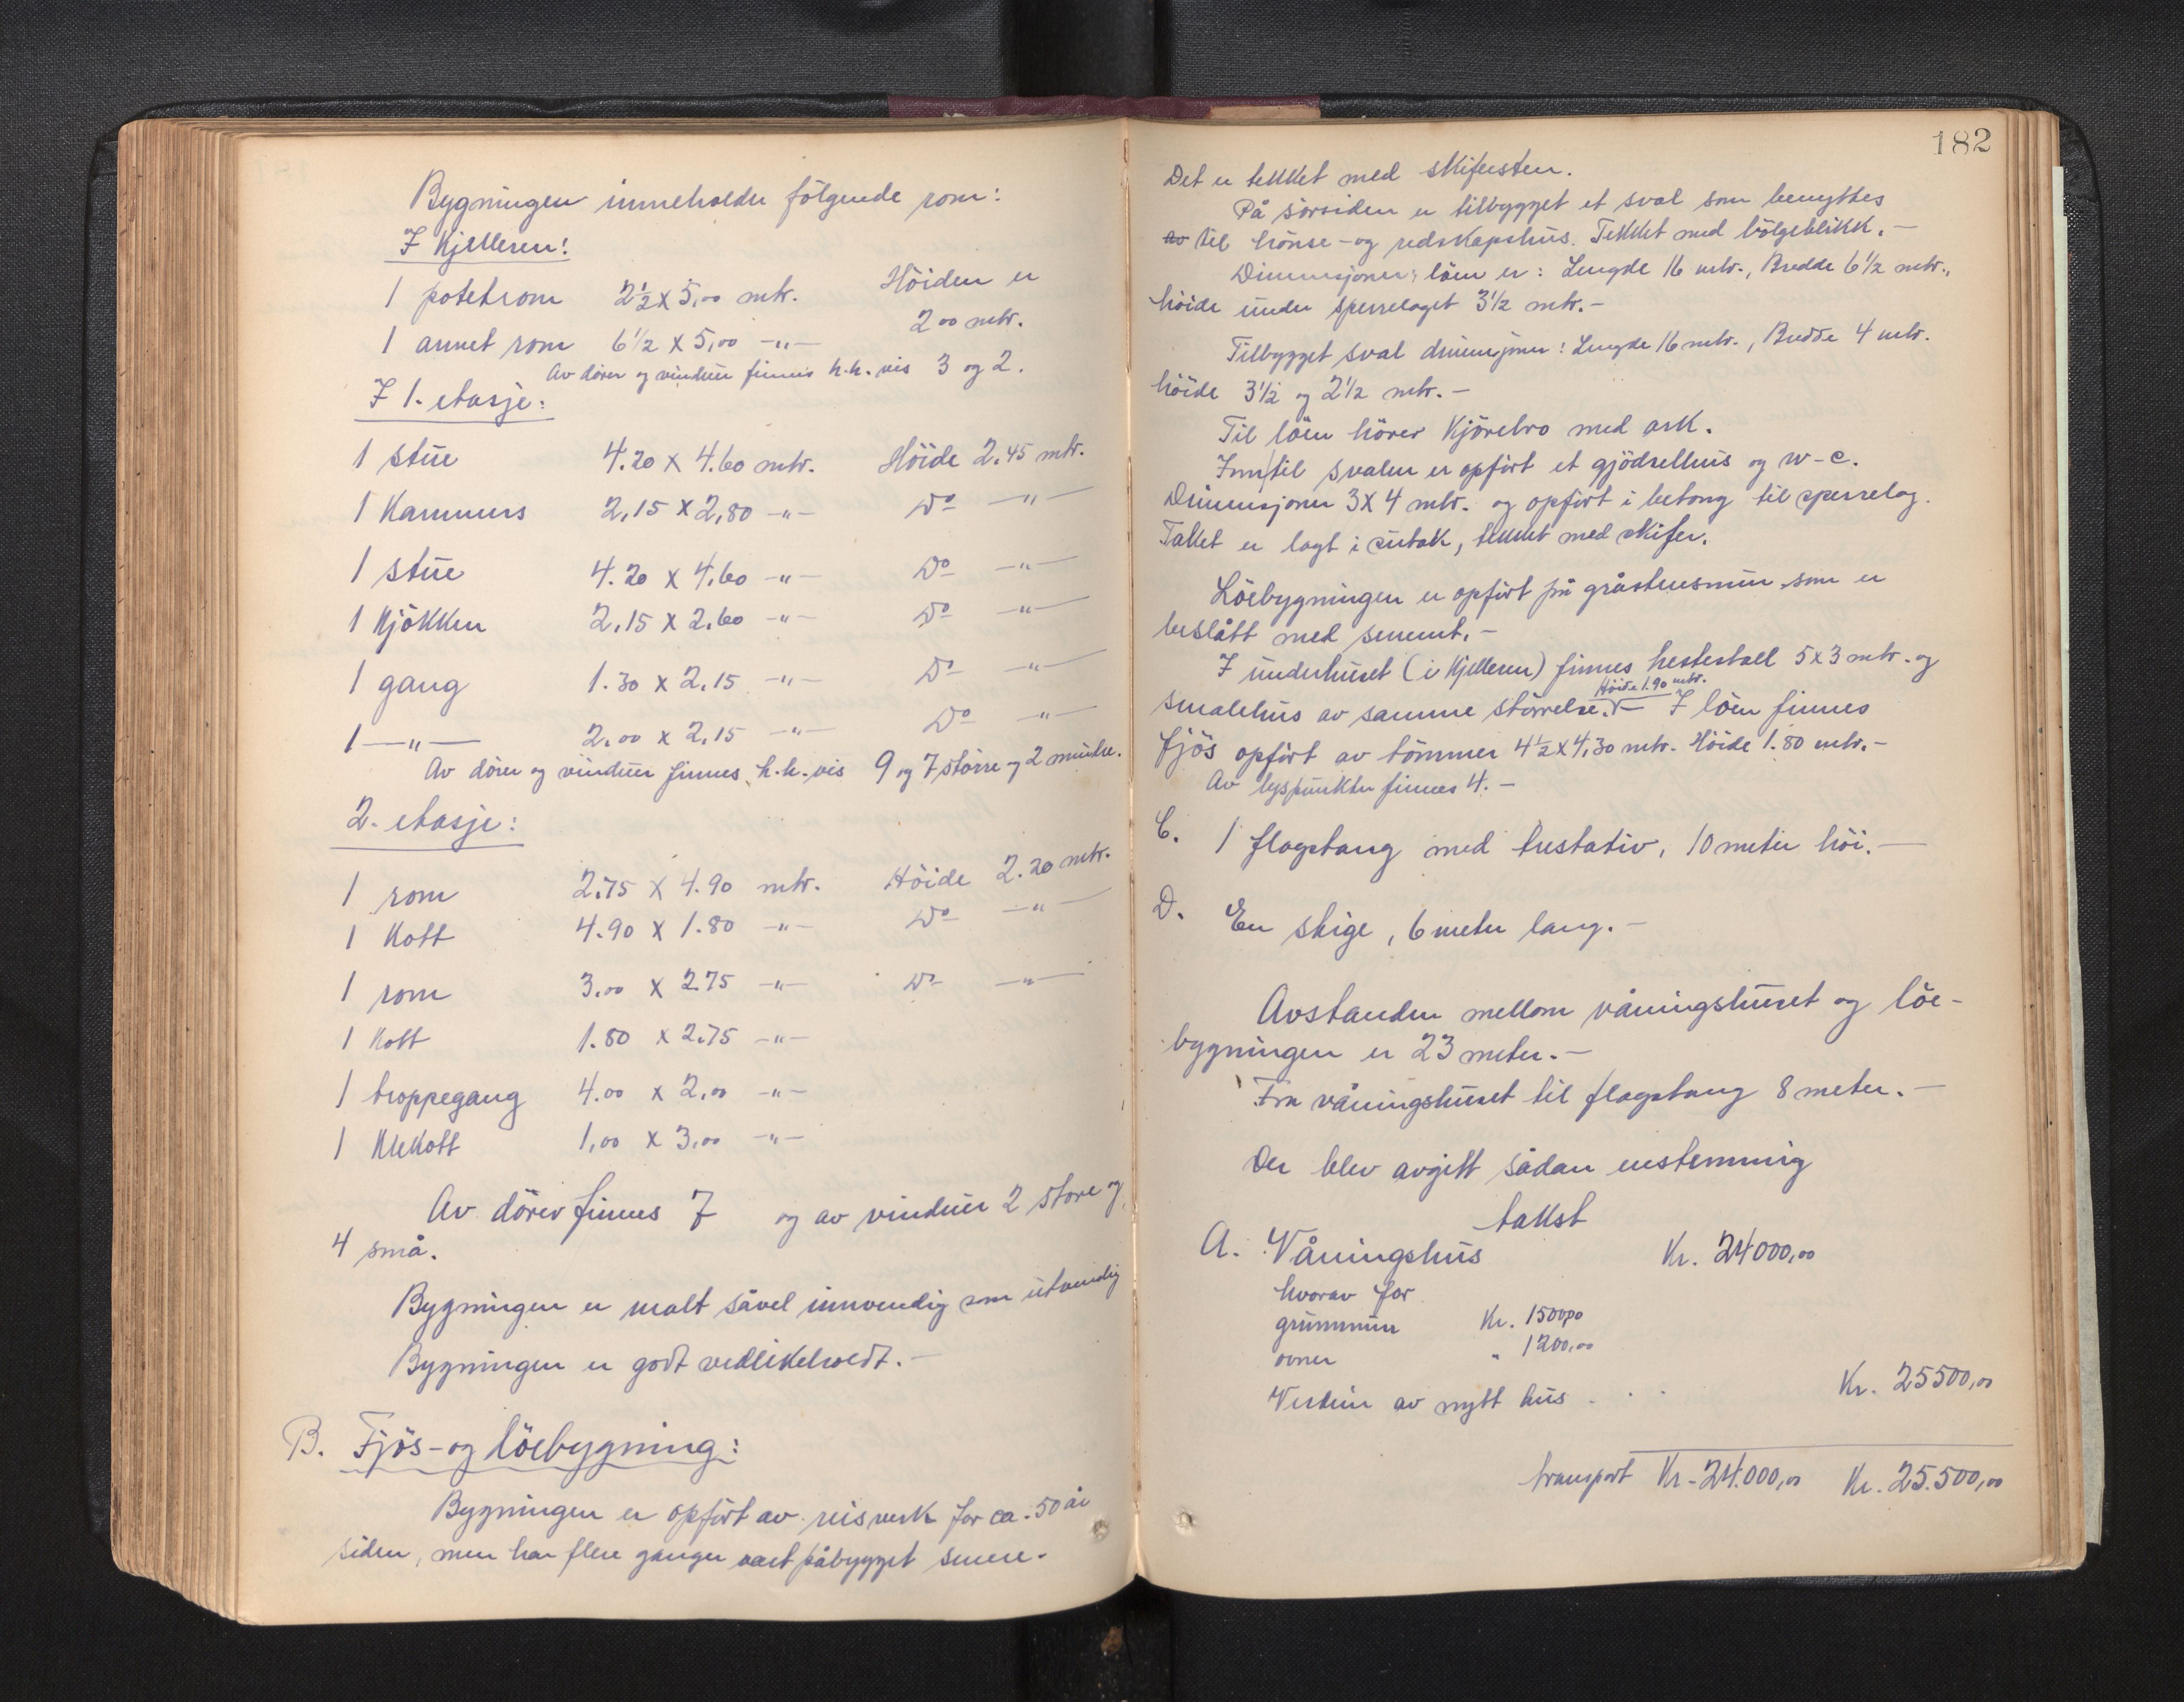 Bygningen inneholder følgende rom:
I Kjelleren:
1 potetrom 2½ x 5,00 mtr. Höiden er
2 00 mtr.
1 annet rom 6½ x 5,00 -"-
Av dörer og vinduer finnes h.h.vis 3 og 2.
I 1. etasje:
1 stue 4.20 x 4.60 mtr. Höide 2.45 mtr.
1 Kammers 2,15 x 2,80 -"- Do -"-
1 stue 4.20 x 4,60 -"- Do -"-
1 Kjökken 2,15 x 2,60 -"- Do -"-
1 gang 1.30 x 2.15 -"- Do -"-
1 -"- 2,00 x 2,15 -"- Do -"-
Av dörer og vinduer finnes h.h.vis 9 og 7 större og 2 mindre.
2. etasje:
1 rom 2.75 x 4.90 mtr. Höide 2.20 mtr.
1 Kott 4.90 x 1.80 -"- Do -"-
1 rom 3,00 x 2.75 -"- Do -"-
1 Kott 1.80 x 2.75 -"-
1 troppegang 4.00 x 2,00 -"-
1 Klekott 1,00 x 3,00 -"-
Av dörer finnes 7 og av vinduer 2 store og
4 små.
Bygningen er malt såvel innvendig som utvendig
Bygningen er godt vedlikeholdt.-
B. Fjös- og löebygning:
Bygningen er opfört av reisverk for ca. 50 år
siden, men har flere ganger vært påbygget senere.
182
Det er tekket med skifersten.
På sörsiden er tilbygget et sval som benyttes
av til hönse- og redskapshus. Tekket med bölgeblikk.-
Dimensjoner: löen er: Lengde 16 mtr., Bredde 6½ mtr.,
höide under sperrelaget 3½ mtr.-
Tilbygget sval dimensjoner: Lengde 16 mtr., Bredde 4 mtr.
höide 3½ og 2½ mtr.-
Til löen hörer Kjörebro med ark.
Inn til svalen er opfört et gjödselhus og w-c.
Dimensjoner 3x4 mtr. og opfört i betong til sperrelag.
Taket er lagt i sutak, tekket med skifer.
Löebygningen er opfört på gråstensmur som er
beslått med sement.-
I underhuset (i Kjelleren) finnes hestestall 5x3 mtr. og
Höide 1.90 mtr.
smalehus av samme störrelse.- I löen finnes
fjös opfört av tömmer 4½ x 4,30 mtr. Höide 1.80 mtr.-
Av lyspunkter finnes 4.-
C. 1 flagstang med trestativ, 10 meter höi.-
D. En stige, 6 meter lang.-
Avstanden mellom våningshuset og löe-
bygningen er 23 meter.-
Fra våningshuset til flagstang 8 meter.-
Der blev avgitt sådan enstemmig
takst
A. Våningshus Kr. 24000,00
hvorav for
grunnmur Kr. 1500,00
ovner " 1200,00
Verdien av nytt hus . . . Kr. 25500,00
transport Kr. 24.000,00 Kr. 25.500,00